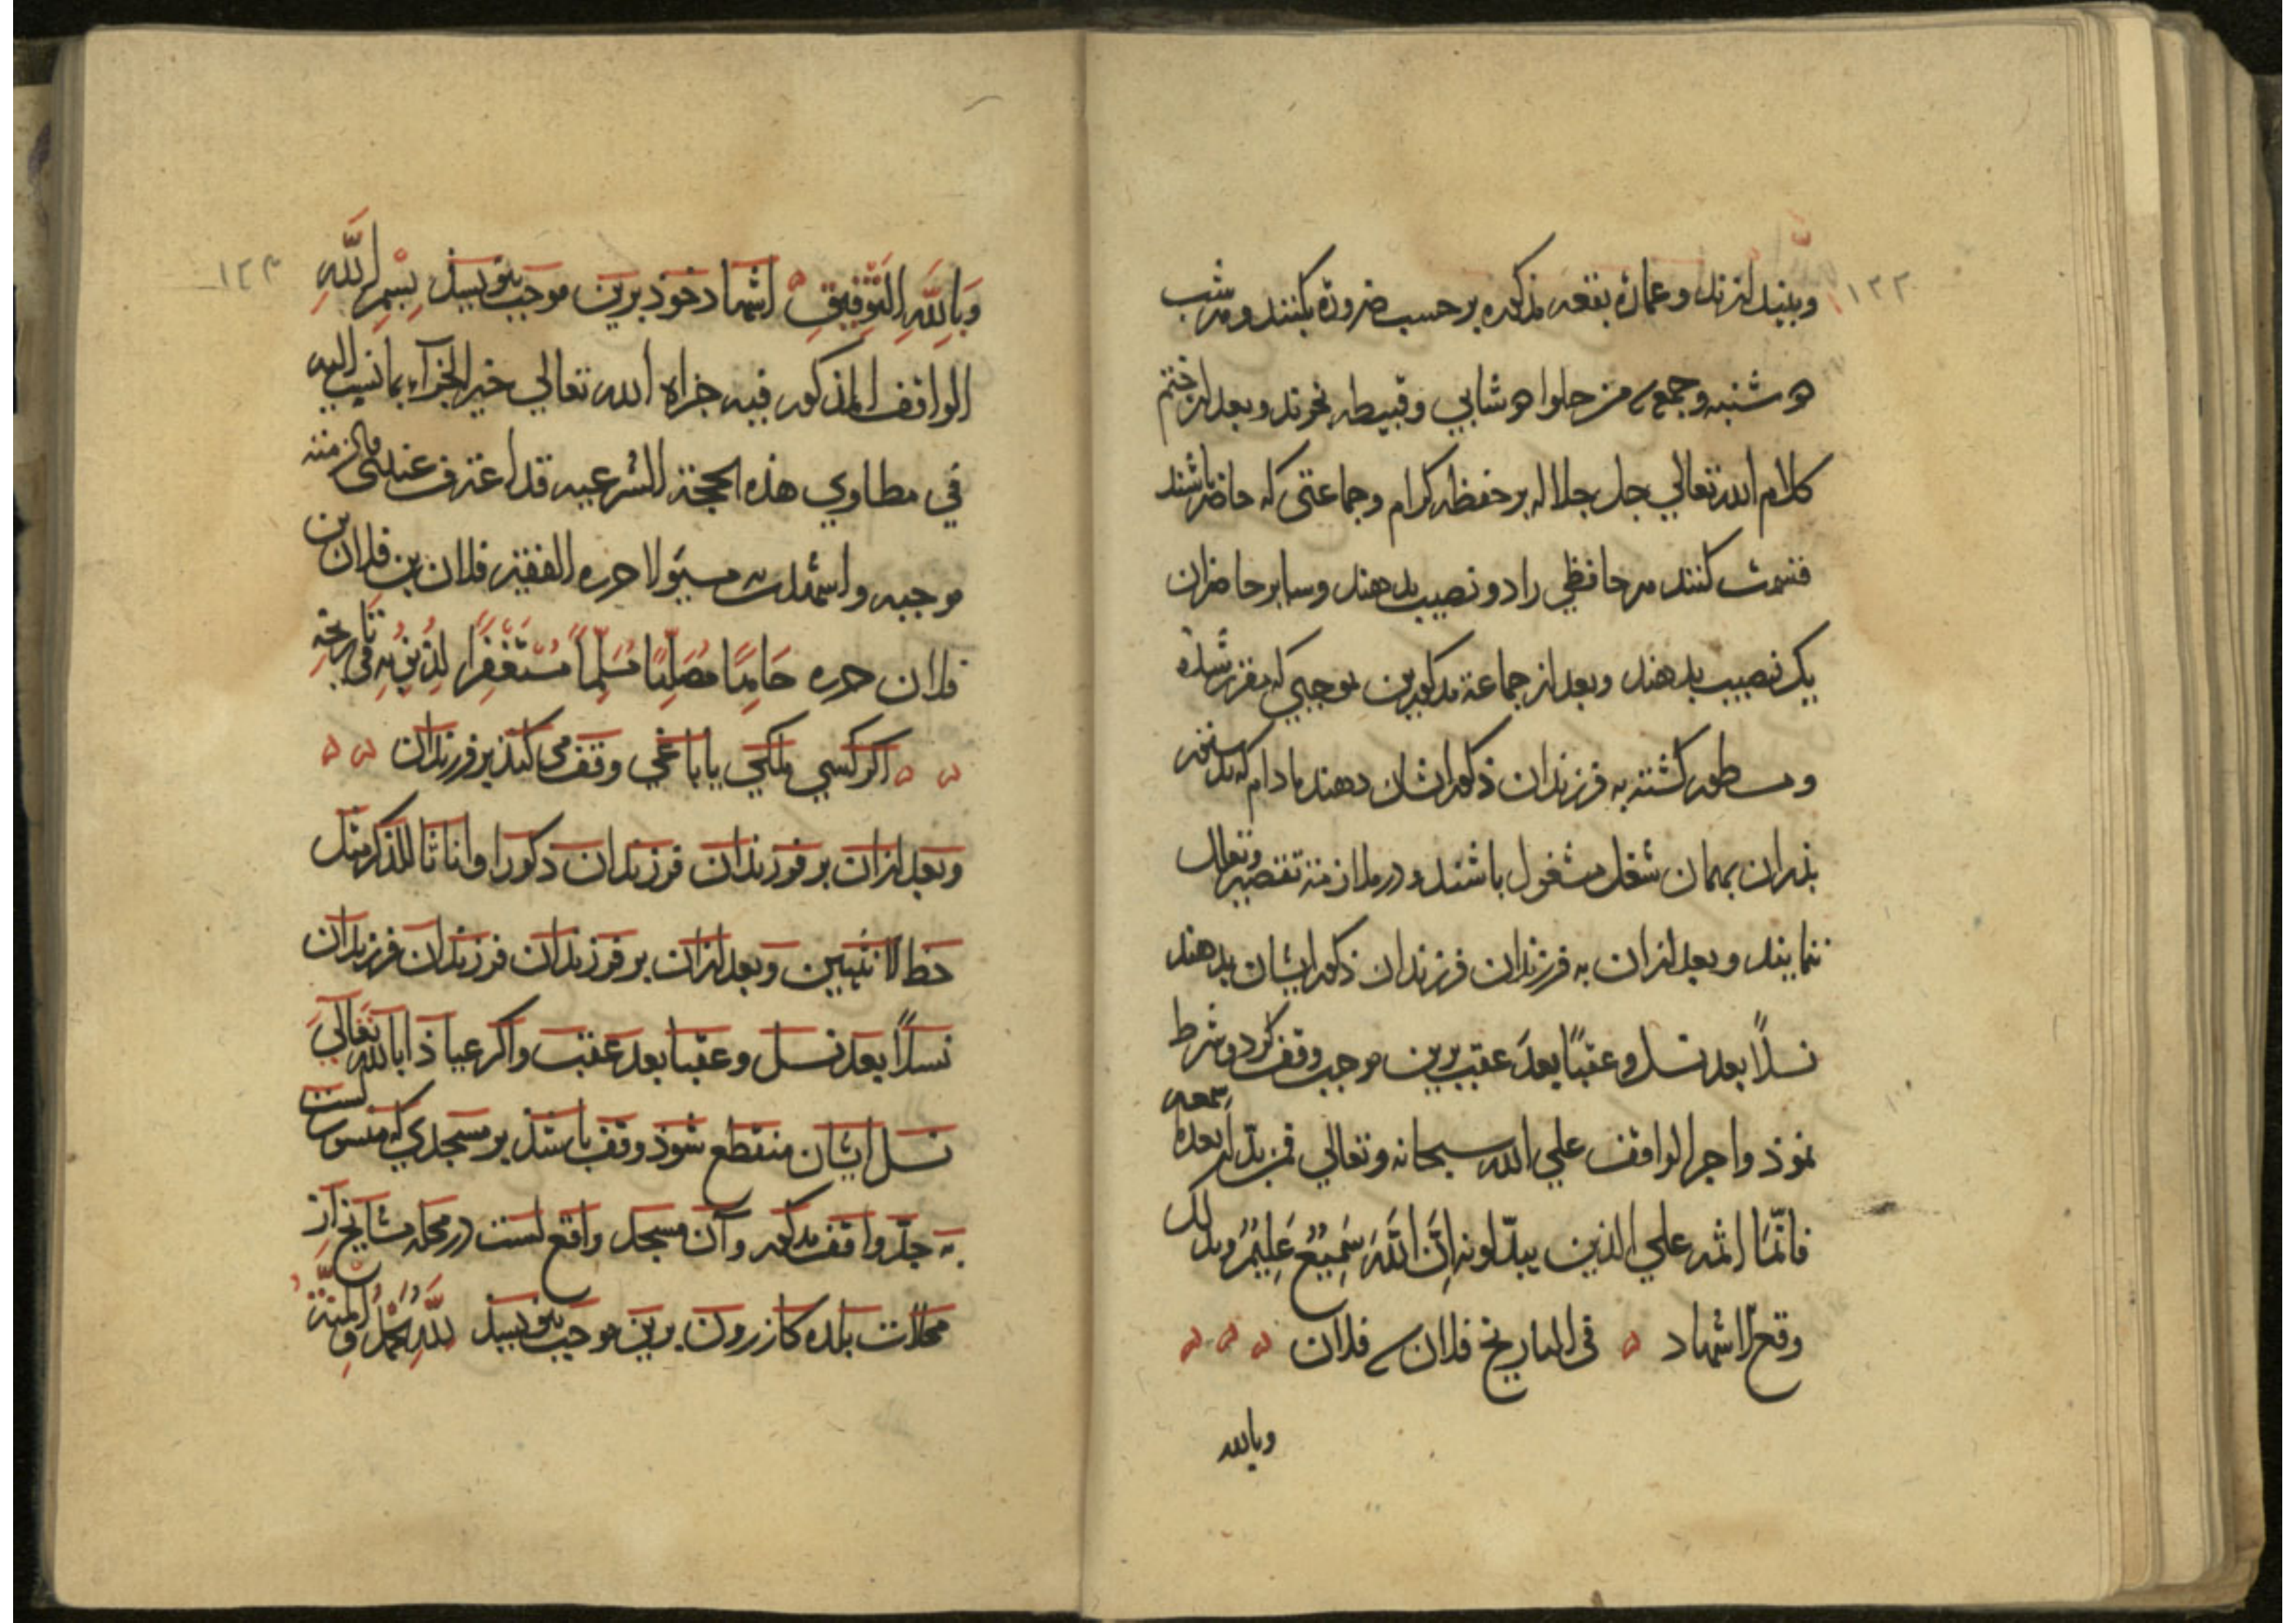 ۱۲۲
وبنید لنزند و عمارة بقعه مذکوره بر حسب ضرورة بکنند و هر شب
دوشنبه و جمعه من حلواء دوشابی وقبیطه بخرند و بعد از ختم
کلام الله تعالی جل جلاله بر حفظه کرام وجماعتی که حاضر باشند
قسمت کنند هر حافظی را دو نصیب بدهند و سایر حاضران
یک نصیب بدهند و بعد از جماعة مذکورین بموجبی که مقرر شده
و مسطور کشته به فرزندان ذکور ایشان دهند مادام که بدستور
پذران بهمان شغل مشغول باشند و در ملازمته تقصیر و تعلل
ننمایند و بعد ازان به فرزندان فرزندان ذکور ایشان بدهند
نسلاً بعد نسل و عقبًا بعدَ عقب برین موجب وقف کرد و شرط
نموذ واجر الواقف علی الله سبحانه وتعالی فمن بدله بعد ما سمعه
فانّما اثمه علی الذین یبدّلونه اِنَّ اللَّهَ سَمِیعٌ عَلِیمٌ وبذلک
وقع الاشهاد فی التاریخ فلان فلان
وبالله
۱۲۳
وَبِاللَّهِ التَّوْفِیقِ اشهاد خوذ برین موجب بنویسذ بِسْمِ اللَّهِ
الواقف المذکور فیه جزاه الله تعالی خیر الجزآء بما نسب الیه
فی مطاوی هذه الحجة الشرعیه قد اعترف عندی من
موجبه واشهدت مسئولا حرره الفقیر فلان بن فلان بن
فلان حرره حَامِدًا مُصَلِّیًا مُسَلِّماً مُسْتَغْفِرًا لِذُنُوبِهِ فی تَارِیخِهِ
اکر کسی ملکی یا باغی وقف می کنذ بر فرزندان
وبعد ازان بر فرزندان فرزندان ذکورا واناثا للذکر مثل
حظ الانثیین وبعد ازان بر فرزندان فرزندان فرزندان
نسلاً بعد نسل و عقبا بعد عقب و اکر عیاذا بالله تعالی
نسل ایشان منقطع شوذ وقف باشذ بر مسجدی که منسوب است
به جدّ واقف مذکور و آن مسجد واقع است در محله مشایخ از
محلات بلده کازرون برین موجب بنویسذ لِلَّهِ الْحَمْدُ وَالْمِنَّةُ